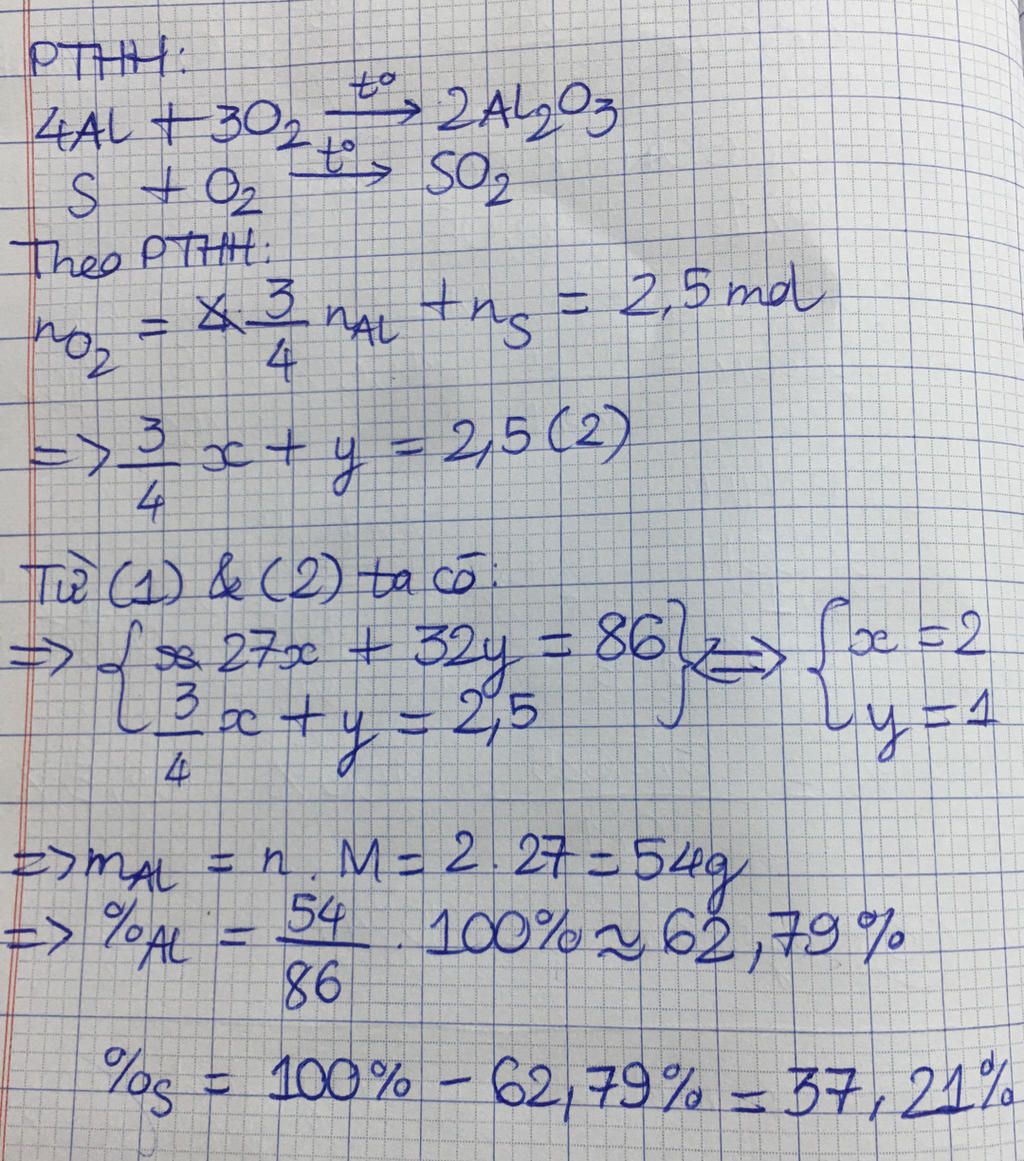 PTHH:
4Al + 3O₂ —t°→ 2Al₂O₃
S + O₂ —t°→ SO₂
Theo PTHH:
nO₂ = 3/4 nAl + nS = 2,5 mol
=> 3/4 x + y = 2,5 (2)
Từ (1) & (2) ta có:
=> { 27x + 32y = 86 } <=> { x = 2
3/4 x + y = 2,5 y = 1
=> mAl = n . M = 2 . 27 = 54g
=> %Al = 54/86 . 100% ≈ 62,79%
%S = 100% - 62,79% = 37,21%